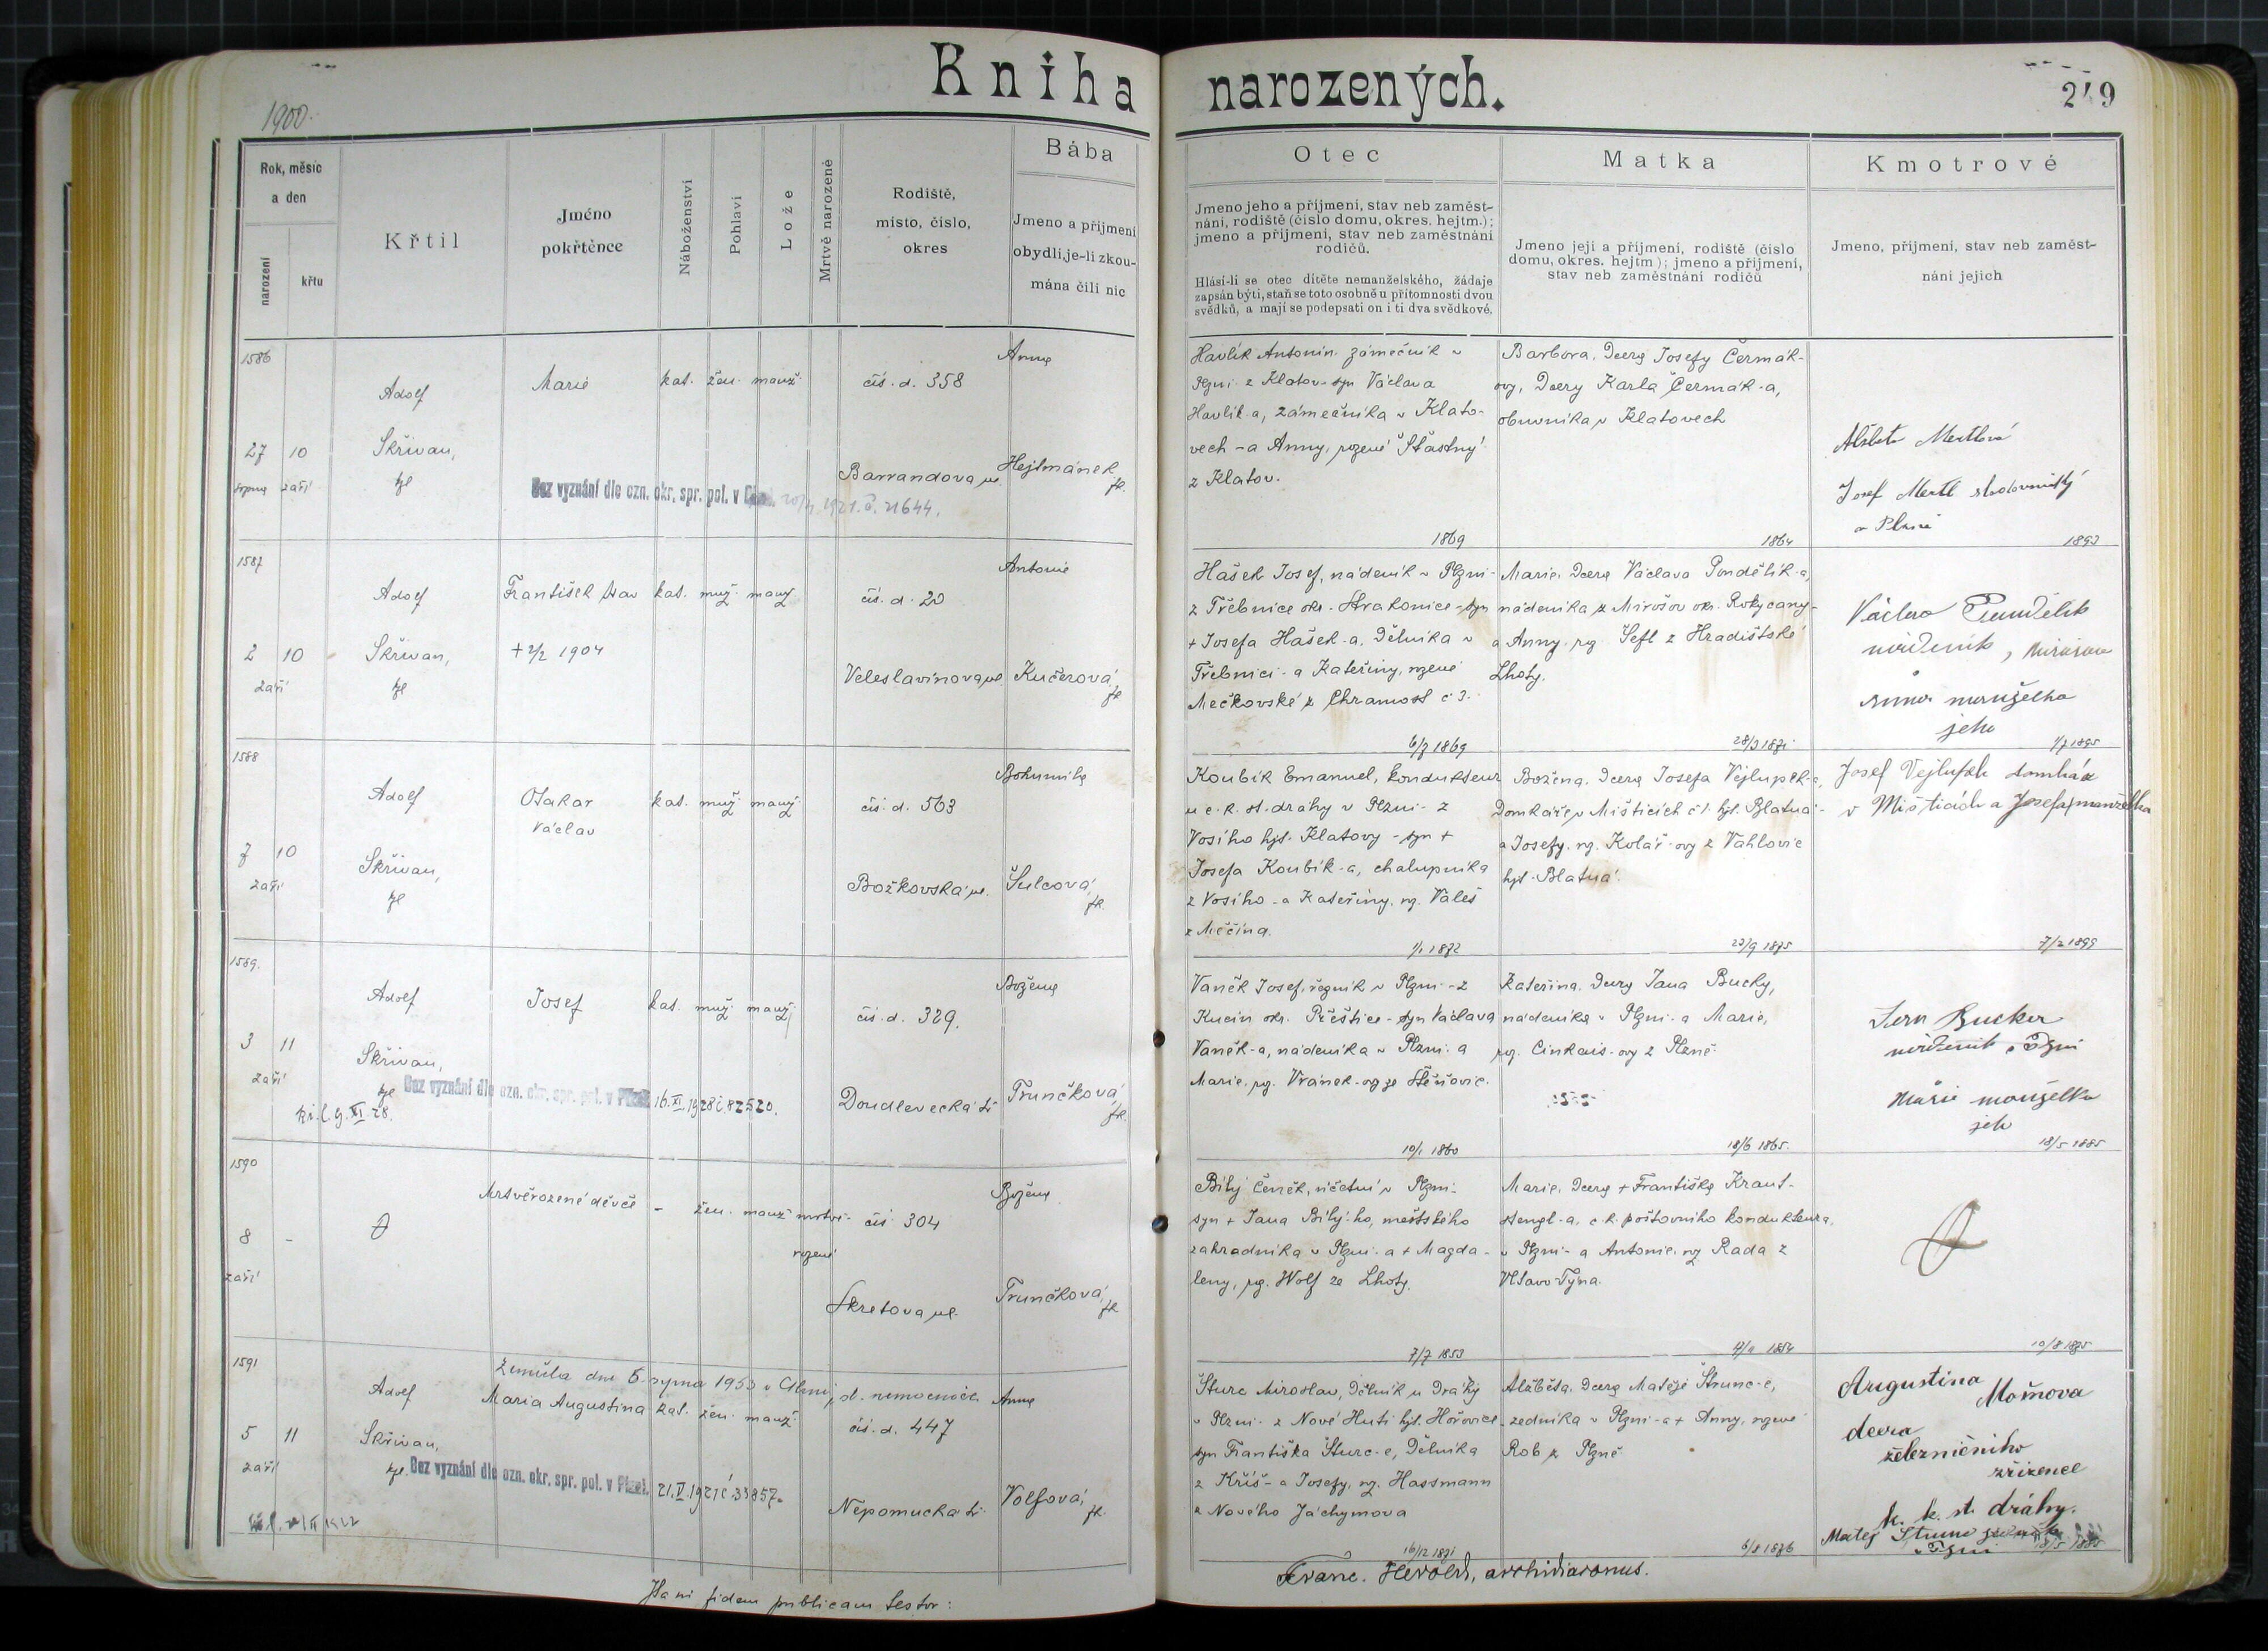 Kniha narozených.
1900.
249
Rok, měsíc
a den
narození
křtu
Křtil
Jméno
pokřtěnce
Náboženství
Pohlaví
Lože
Mrtvě narozené
Rodiště,
místo, číslo,
okres
Bába
Jmeno a příjmení
obydlí, je-li zkou-
mána čili nic
Otec
Jmeno jeho a příjmení, stav neb zaměst-
nání, rodiště (číslo domu, okres. hejtm.);
jmeno a příjmení, stav neb zaměstnání
rodičů.
Hlásí-li se otec dítěte nemanželského, žádaje
zapsán býti, staň se toto osobně u přítomnosti dvou
svědků, a mají se podepsati on i ti dva svědkové.
Matka
Jmeno její a příjmení, rodiště (číslo
domu, okres. hejtm); jmeno a příjmení,
stav neb zaměstnání rodičů
Kmotrové
Jmeno, příjmení, stav neb zaměst-
nání jejich
1586
27 srpna
10 září
Adolf
Skřivan,
kpl
Marie
kat. žen. manž.
čís. d. 358
Barrandova ul.
Anna
Hejtmánek
zk.
Bez vyznání dle ozn. okr. spr. pol. v Plzni 1921 č. 21644.
Havlík Antonín, zámečník v
Plzni z Klatov - syn Václava
Havlík-a, zámečníka v Klato-
vech - a Anny, rozené Šťastný
z Klatov.
1869
Barbora, dcera Josefy Čermák-
ovy, dcery Karla Čermák-a,
obuvníka v Klatovech
1864
Alžběta Mertlová
Josef Mertl sladovnický
v Plzni
1893
1587
2 září
10
Adolf
Skřivan,
kpl
František
† 2/2 1904
kat. muž. manž.
čís. d. 20
Veleslavínova ul.
Antonie
Kučerová,
zk.
Hašek Josef, nádeník v Plzni -
z Třebnice okr. Strakonice - syn
† Josefa Hašek-a, dělníka v
Třebnici - a Kateřiny, rozené
Mečkovské z Chramost č 3.
6/7 1869
Marie, dcera Václava Pondělík-a,
nádeníka z Mirošov okr. Rokycany -
a Anny, roz. Šefl z Hradištské
Lhoty.
28/3 1871
Václav Pundělík
nádeník, Mirošov
Anna manželka
jeho
1/7 1895
1588
7 září
10
Adolf
Skřivan,
kpl
Otakar
Václav
kat. muž. manž.
čís. d. 563
Božkovská ul.
Bohumila
Šulcová,
zk.
Koubík Emanuel, kondukteur
u c. k. st. dráhy v Plzni - z
Vosího hjt. Klatovy - syn †
Josefa Koubík-a, chalupníka
z Vosího - a Kateřiny, roz. Valeš
z Měčína.
1/1 1872
Božena, dcera Josefa Vejlupek-a,
domkáře v Mišticích č 1. hjt. Blatná -
a Josefy, roz. Kolář-ovy z Vahlovic
hjt. Blatná.
23/9 1875
Josef Vejlupek domkář
v Mišticích a Josefa, manželka
7/2 1899
1589.
3 září
11
Adolf
Skřivan,
kpl
Josef
kat. muž. manž.
čís. d. 329.
Doudlevecká tř.
Božena
Trunčková,
zk.
kř. l. 9. XI. 28.
Bez vyznání dle ozn. okr. spr. pol. v Plzni. 16. XI. 1928 č. 82520.
Vaněk Josef, řezník v Plzni - z
Kucin okr. Přeštice - syn Václava
Vaněk-a, nádeníka v Plzni a
Marie, roz. Vránek-ovy ze Štěňovic.
10/1 1860
Kateřina, dcery Jana Bucky,
nádeníka v Plzni a Marie,
roz. Cinkais-ovy z Plzně.
18/6 1865.
nádeník v Plzni
Marie manželka
jeh
18/5 1885
1590
8 září
-
Mrtvěrozené děvče
- žen. manž. mrtvě
rozené
čís 304
Skretova ul.
Božena
Trunčková,
zk
Bílý Čeněk, účetní v Plzni -
syn † Jana Bílý-ho, městského
zahradníka v Plzni a † Magda-
leny, roz. Wolf ze Lhoty.
7/7 1853
Marie, dcera † Františka Kraut-
stengl-a, c. k. poštovního kondukteura
v Plzni - a Antonie, roz Rada z
Vltavo Týna.
1854
10/8 1875
1591
5 září
11
Adolf
Skřivan,
kpl.
Zemřela dne 5. srpna 1953 v Plzni, st. nemocnice
Maria Augustina kat. žen. manž.
čís. d. 447
Nepomucká tř.
Anna
Volfová,
zk.
Bez vyznání dle ozn. okr. spr. pol. v Plzni. 21. V. 1921 č. 33857.
Šturc Miroslav, dělník u dráhy
v Plzni - z Nové Huti hjt. Hořovice
syn Františka Šturc-e, dělníka
z Kříš - a Josefy, roz. Hassmann
z Nového Jáchymova
16/12 1871
Alžběta, dcera Matěje Štrunc-e,
zedníka v Plzni - a † Anny, rozené
Rob z Plzně
6/8 1876
Augustina Mošnova
dcera
železničního
zřízence
k. k. st. dráhy.
Matěj Štrunc zedník
v Plzni
Franc. Herold, archidiaconus.
fidem publicam testor: